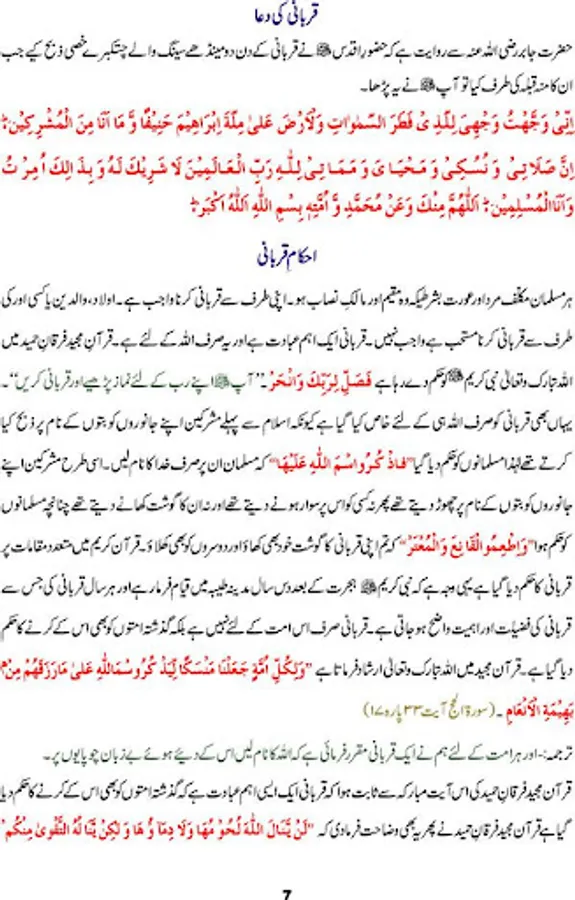 قربانی کی دعا
حضرت جابر رضی اللہ عنہ سے روایت ہے کہ حضور اقدس ﷺ نے قربانی کے دن دو مینڈھے سینگ والے چتکبرے خصی ذبح کیے جب
ان کا منہ قبلہ کی طرف کیا تو آپ ﷺ نے یہ پڑھا۔
اِنِّیْ وَجَّهْتُ وَجْهِیَ لِلَّذِ یْ فَطَرَ السَّمٰوٰتِ وَالْاَرْضَ عَلیٰ مِلَّةِ اِبْرَاهِیْمَ حَنِیْفًا وَّ مَا اَنَا مِنَ الْمُشْرِکِیْنَ؛
اِنَّ صَلَاتِیْ وَ نُسُکِیْ وَ مَحْیَا یَ وَ مَمَا تِیْ لِلّٰہِ رَبِّ الْعَالَمِیْنَ لَا شَرِیْكَ لَهٗ وَ بِذٰ الِكَ اُمِرْ تُ
وَاَنَا الْمُسْلِمِیْنَ؛ اَللّٰهُمَّ مِنْكَ وَعَنْ مُحَمَّدٍ وَّ اُمَّتِهٖ بِسْمِ اللّٰهِ اَللّٰهُ اَکْبَرُ؛
احکام قربانی
ہر مسلمان مکلف مرد اور عورت بشرطیکہ وہ مقیم اور مالکِ نصاب ہو۔ اپنی طرف سے قربانی کرنا واجب ہے۔ اولاد، والدین یا کسی اور کی
طرف سے قربانی کرنا مستحب ہے واجب نہیں۔ قربانی ایک اہم عبادت ہے اور یہ صرف اللہ کے لئے ہے۔ قرآنِ مجید فرقانِ حمید میں
اللہ تبارک وتعالیٰ نبی کریم ﷺ کو حکم دے رہا ہے فَصَلِّ لِرَبِّكَ وَانْحَرْ۔ ”آپ ﷺ اپنے رب کے لئے نماز پڑھیے اور قربانی کریں“۔
یہاں بھی قربانی کو صرف اللہ ہی کے لئے خاص کیا گیا ہے کیونکہ اسلام سے پہلے مشرکین اپنے جانوروں کو بتوں کے نام پر ذبح کیا
کرتے تھے لہٰذا مسلمانوں کو حکم دیا گیا ”فَاذْ کُرُوا اسْمَ اللّٰهِ عَلَیْهَا“ کہ مسلمان ان پر صرف خدا کا نام لیں۔ اسی طرح مشرکین اپنے
جانوروں کو بتوں کے نام پر چھوڑ دیتے تھے پھر نہ کسی کو اس پر سوار ہونے دیتے تھے اور نہ ان کا گوشت کھانے دیتے تھے چنانچہ مسلمانوں
کو حکم ہوا ”وَاَطْعِمُوا الْقَانِعَ وَ الْمُعْتَرَّ“ کہ تم اپنی قربانی کا گوشت خود بھی کھاؤ اور دوسروں کو بھی کھلاؤ۔ قرآن کریم میں متعدد مقامات پر
قربانی کا حکم دیا گیا ہے یہی وجہ ہے کہ نبی کریم ﷺ ہجرت کے بعد دس سال مدینہ طیبہ میں قیام فرما رہے اور ہر سال قربانی کی جس سے
قربانی کی فضیلت اور اہمیت واضح ہو جاتی ہے۔ قربانی صرف اس امت کے لئے نہیں ہے بلکہ گذشتہ امتوں کو بھی اس کے کرنے کا حکم
دیا گیا ہے۔ قرآن مجید میں اللہ تبارک وتعالیٰ ارشاد فرماتا ہے ”وَلِکُلِّ اُمَّةٍ جَعَلْنَا مَنْسَکًا لِّیَذْ کُرُ وسْمَ اللّٰهِ عَلیٰ مَا رَزَقَهُمْ مِنْ م
بَهِیْمَةِ الْاَنْعَامِ۔ (سورة الحج آیت ۳۳ پارہ ۱۷)
ترجمہ:۔ اور ہر امت کے لئے ہم نے ایک قربانی مقرر فرمائی ہے کہ اللہ کا نام لیں اس کے دیئے ہوئے بے زبان چوپایوں پر۔
قرآن مجید فرقانِ حمید کی اس آیت مبارکہ سے ثابت ہوا کہ قربانی ایک ایسی اہم عبادت ہے کہ گذشتہ امتوں کو بھی اس کے کرنے کا حکم دیا
گیا ہے قرآن مجید فرقانِ حمید نے پھر یہ بھی وضاحت فرما دی کہ ”لَنْ یَّنَالَ اللّٰهَ لُحُوْ مُهَا وَلَا دِمَآ ؤُ هَا وَ لٰکِنْ یَّنَا لُهُ التَّقْویٰ مِنْکُم“
7